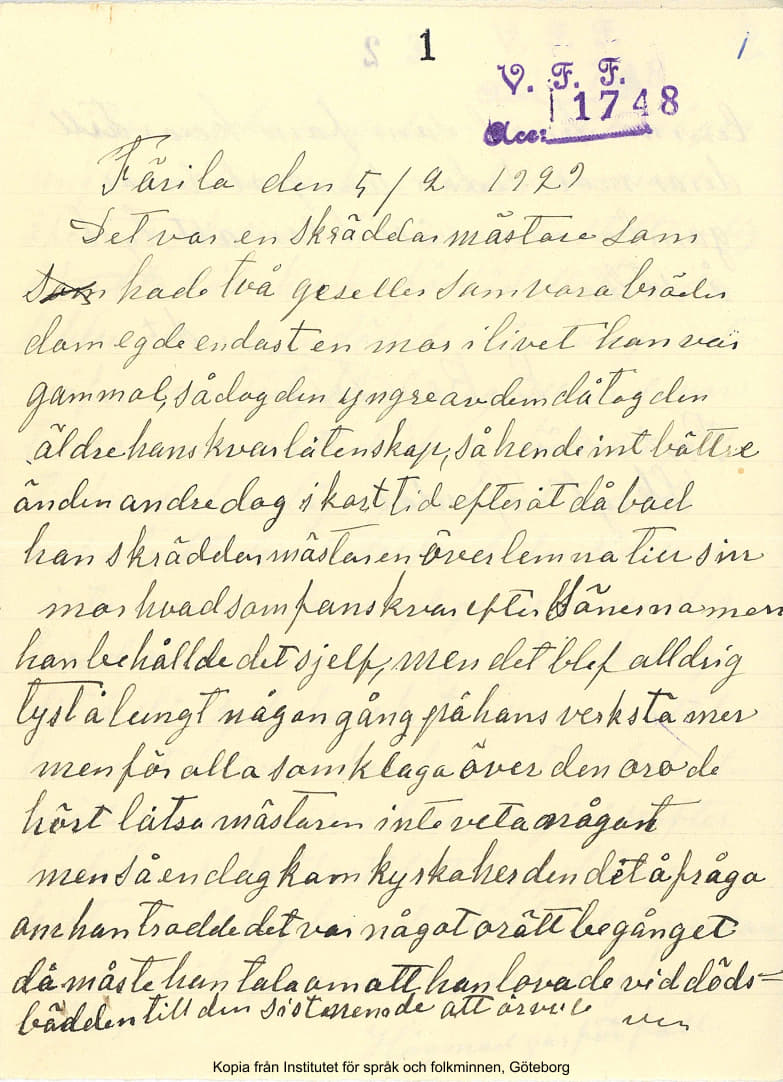 1
V. F. F.
Acc: 1748
Färila den 5/2 1929
Det var en skräddarmästare som
som hade två geseller som vara bröder
dom egde endast en mor i livet hon var
gammal, så dog den yngre av dem då tog den
äldre hans kvarlåtenskap, så hende int bättre
än den andre dog i kort tid efteråt då bad
han skräddarmästaren överlemna till sin
mor hvad som fans kvar efter Sönerna men
han behållde det sjelf, men det blef alldrig
tyst å lungt någon gång på hans verksta mer
men för alla som klaga över den oro de
hört låtsa mästaren inte veta någont
men så en dag kom kyrkoherden dit å fråga
om han trodde det var något orätt begånget
då måste han tala om att han lovade vid döds=
bädden till den sistnemnde att
Kopia från Institutet för språk och folkminnen, Göteborg